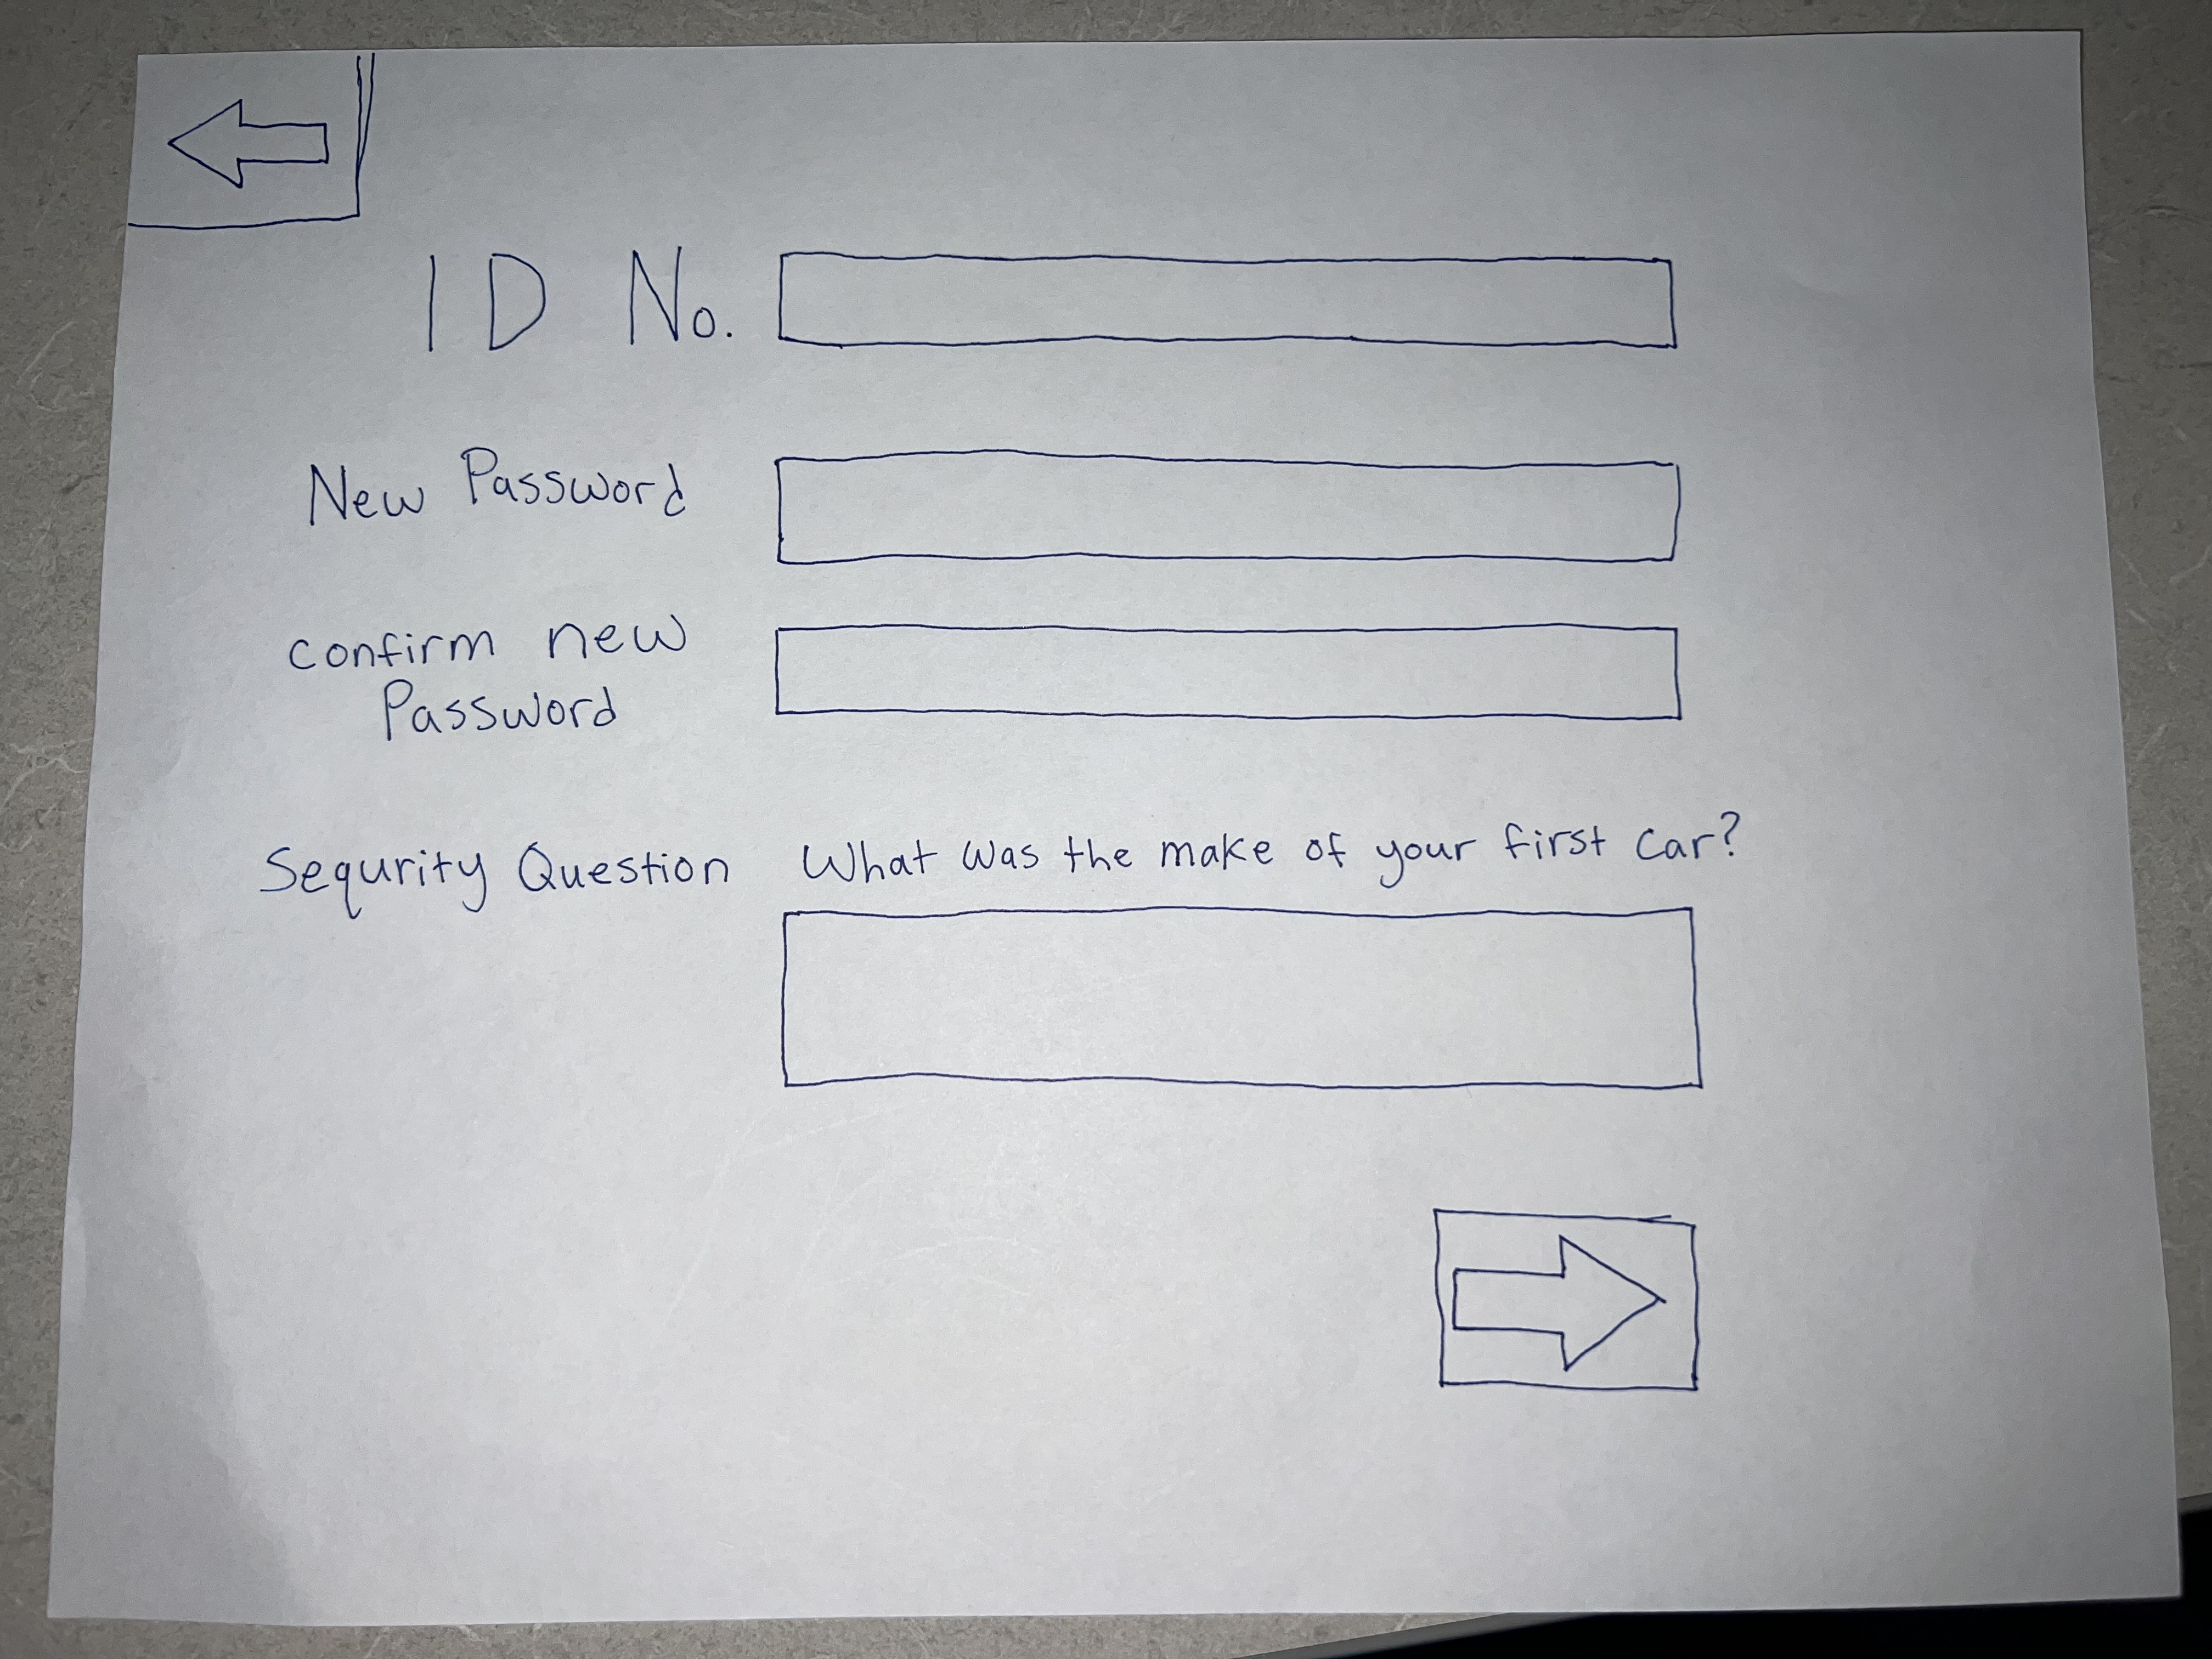 ID No.
New Password
confirm new
Password
Sequrity Question What was the make of your first car?